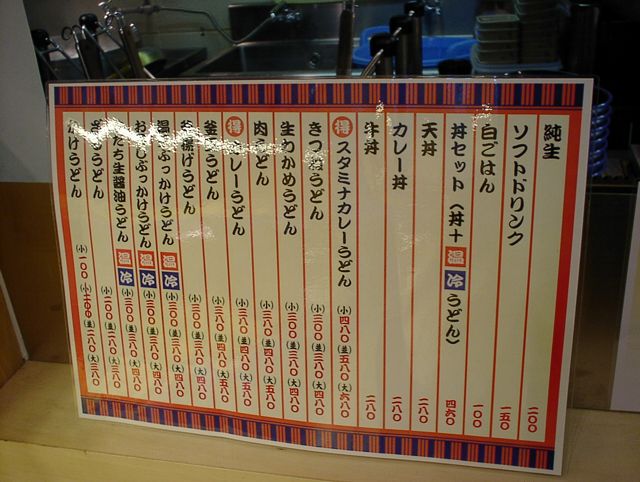 純生 二〇〇
ソフトドリンク 一五〇
白ごはん 一〇〇
丼セット（丼＋温冷うどん） 四六〇
天丼 二八〇
カレー丼 二八〇
牛丼 二八〇
得 スタミナカレーうどん (小)四八〇(並)五八〇(大)六八〇
きつねうどん (小)二八〇(並)三八〇(大)四八〇
生わかめうどん (小)三〇〇(並)三八〇(大)四八〇
肉うどん (小)三八〇(並)四八〇(大)五八〇
得 カレーうどん (小)三八〇(並)四八〇(大)五八〇
うどん (小)三八〇(並)四八〇(大)五八〇
釜揚げうどん (小)三〇〇(並)三八〇(大)四八〇
ぶっかけうどん 温 冷 (小)三〇〇(並)三八〇(大)四八〇
おろしぶっかけうどん 温 冷 (小)三〇〇(並)三八〇(大)四八〇
生醤油うどん 温 冷 (小)三〇〇(並)三八〇(大)四八〇
うどん (小)二〇〇(並)二八〇(大)三八〇
かけうどん (小)一〇〇(並)二八〇(大)三八〇